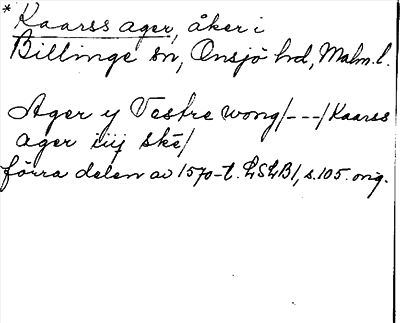 * Kaarss ager, åker i
Billinge sn, Onsjö hd, Malm. l.
Ager y Vestre wong/---/Kaarss
ager iiij ske/
förra delen av 1570-t. LSLB1, s. 105. orig.